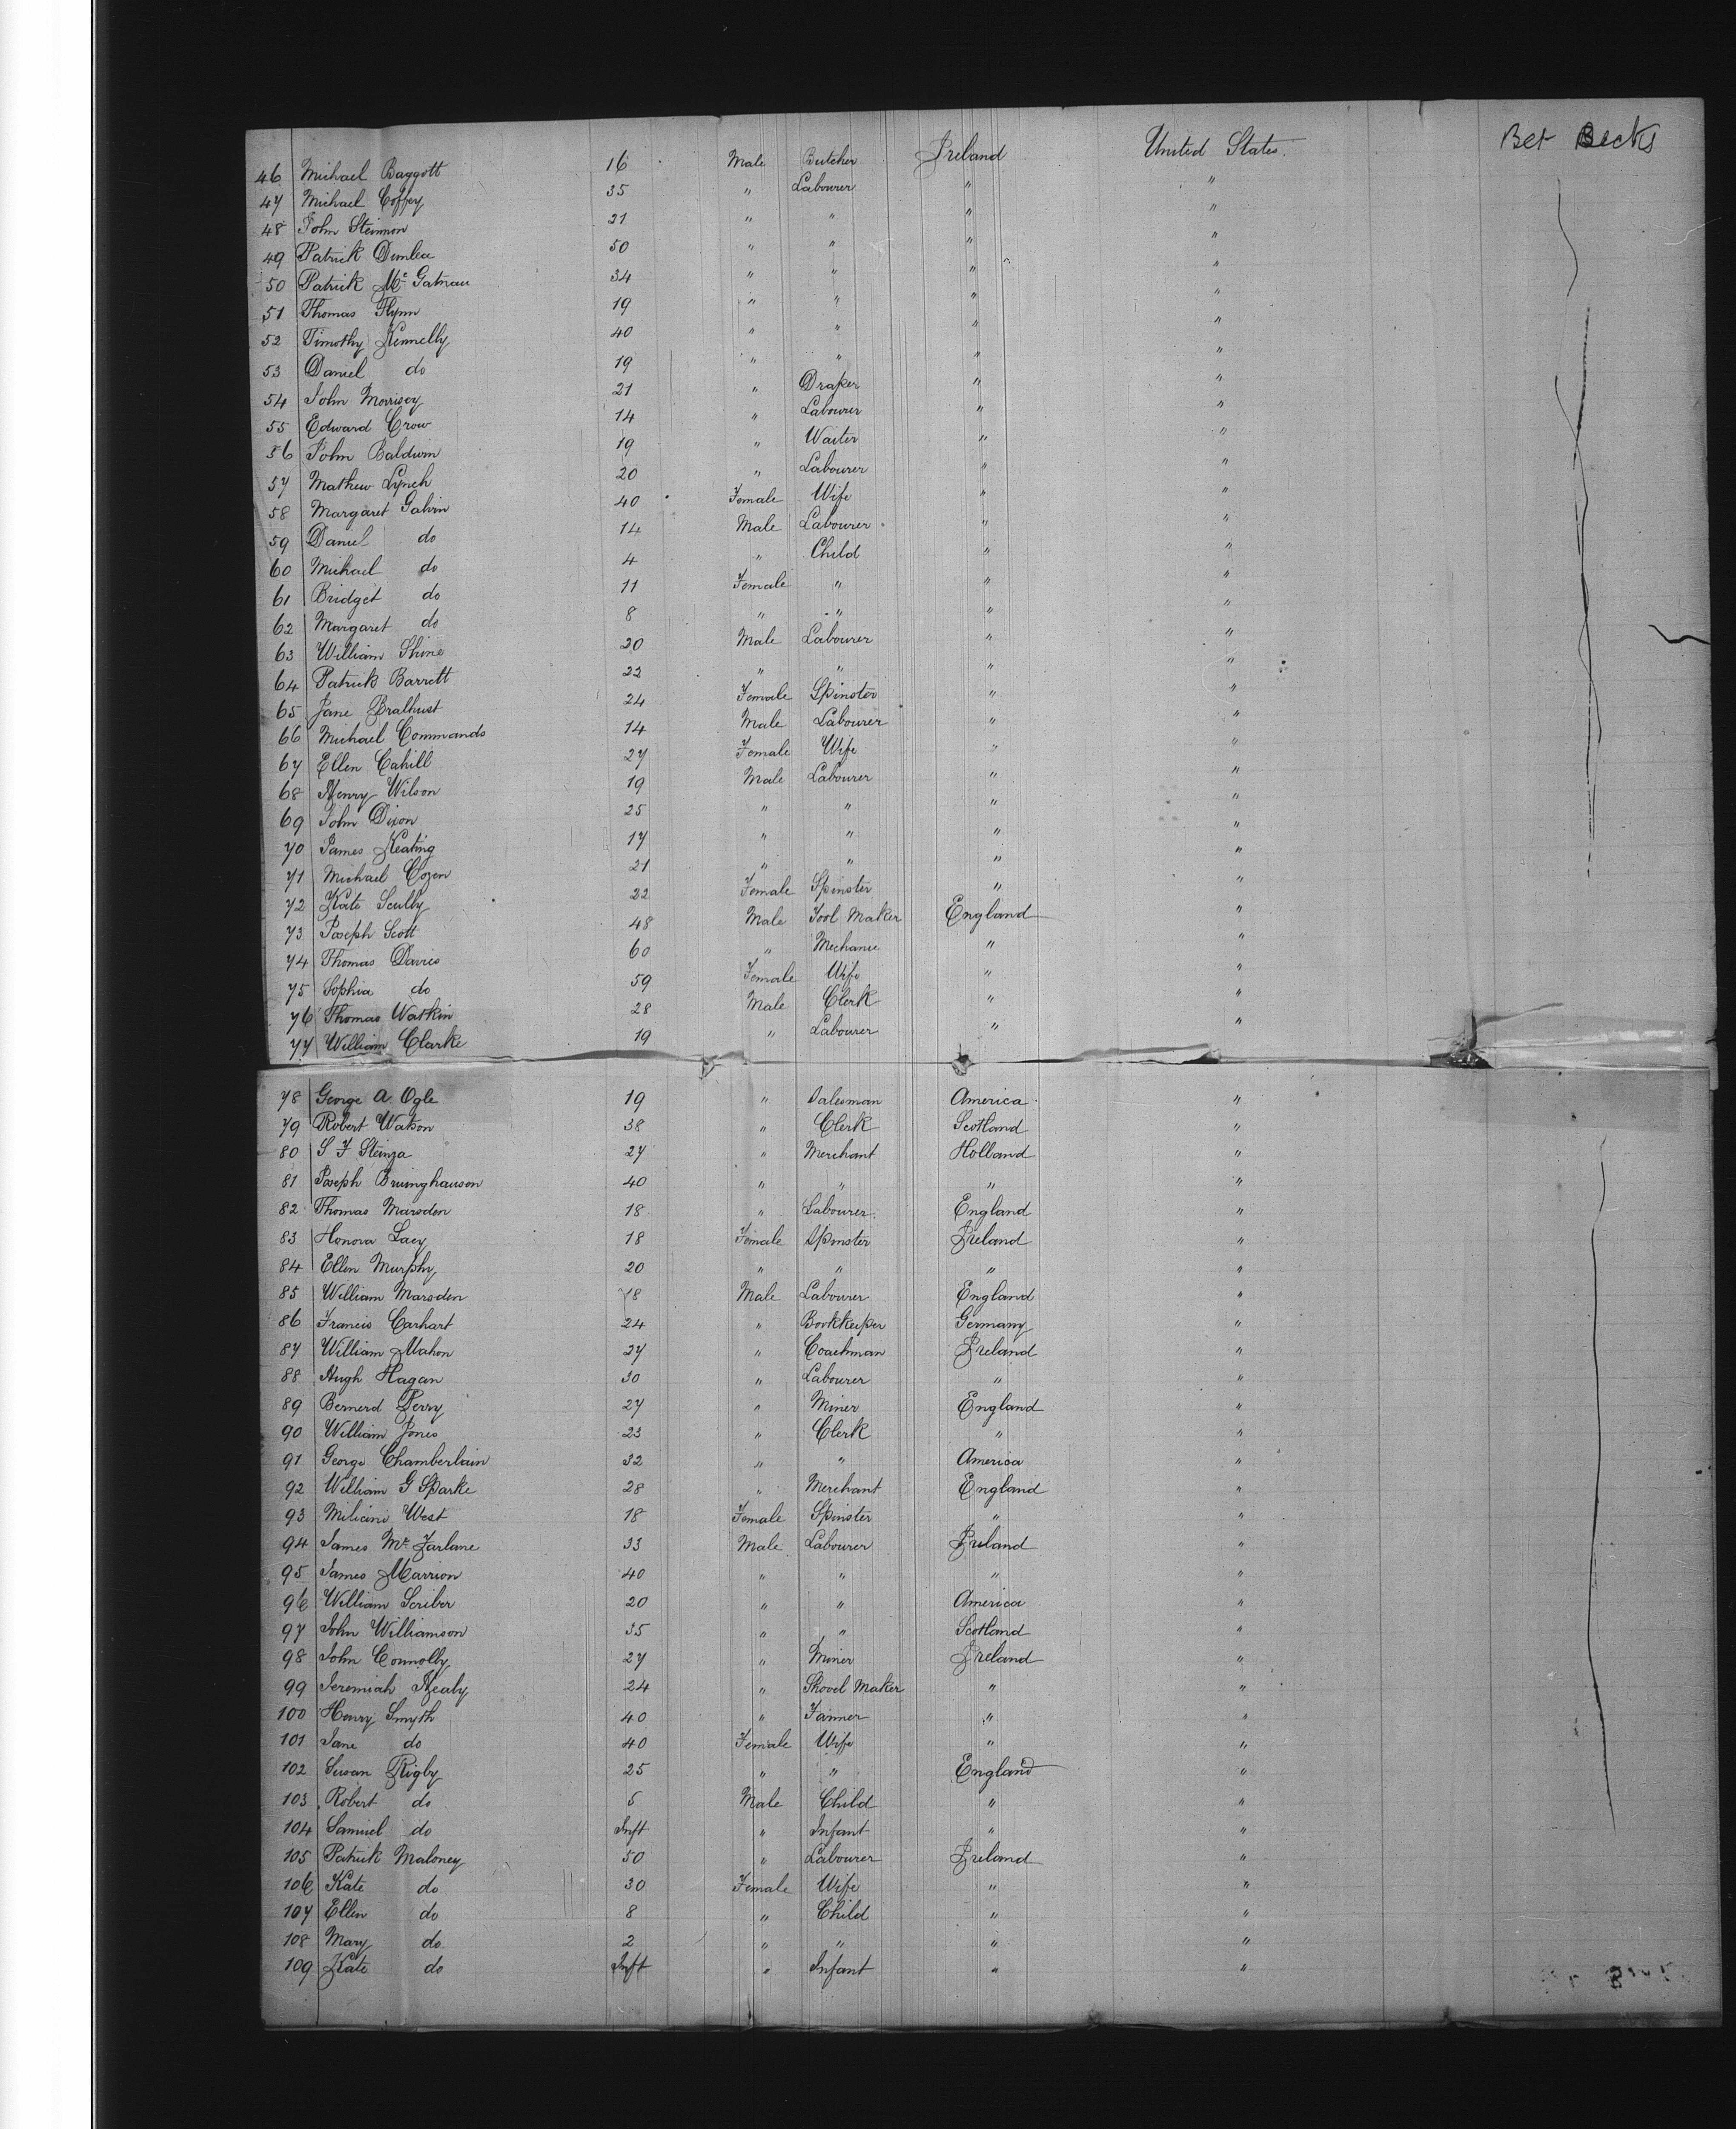 Bet Decks
46 Michael Baggott 16 Male Butcher Ireland United States
47 Michael Coffey 35 " Labourer " "
48 John 21 " " " "
49 Patrick Dunlea 50 " " " "
50 Patrick Mc 34 " " " "
51 Thomas Flynn 19 " " " "
52 Timothy Kennelly 40 " " " "
53 Daniel do 19 " " " "
54 John Morrisey 21 " Draper " "
55 Edward Crow 14 " Labourer " "
56 John Baldwin 19 " Waiter " "
57 Mathew Lynch 20 " Labourer " "
58 Margaret Galvin 40 Female Wife " "
59 Daniel do 14 Male Labourer " "
60 Michael do 4 " Child " "
61 Bridget do 11 Female " " "
62 Margaret do 8 " " " "
63 William Shine 20 Male Labourer " "
64 Patrick Barrett 22 " " " "
65 Jane 24 Female Spinster " "
66 Michael Commands 14 Male Labourer " "
67 Ellen Cahill 27 Female Wife " "
68 Henry Wilson 19 Male Labourer " "
69 John Dixon 25 " " " "
70 James Keating 17 " " " "
71 Michael 21 " " " "
72 Kate Scully 22 Female Spinster " "
73 Joseph Scott 48 Male Tool Maker England "
74 Thomas Davies 60 " Mechanic " "
75 Sophia do 59 Female Wife " "
76 Thomas Watkin 28 Male Clerk " "
77 William Clarke 19 " Labourer " "
78 George A Ogle 19 " Salesman America "
79 Robert Watson 38 " Clerk Scotland "
80 S F 27 " Merchant Holland "
81 Joseph Bruinghauson 40 " " " "
82 Thomas Marsden 18 " Labourer England "
83 Honora Lacy 18 Female Spinster Ireland "
84 Ellen Murphy 20 " " " "
85 William Marsden 18 Male Labourer England "
86 Francis Carhart 24 " Bookkeeper Germany "
87 William Mahon 27 " Coachman Ireland "
88 Hugh Hagan 30 " Labourer " "
89 Bernerd Perry 27 " Miner England "
90 William Jones 23 " Clerk " "
91 George Chamberlain 32 " " America "
92 William G Sparke 28 " Merchant England "
93 West 18 Female Spinster " "
94 James Mc Farlane 33 Male Labourer Ireland "
95 James Marrion 40 " " " "
96 William Scriber 20 " " America "
97 John Williamson 35 " " Scotland "
98 John Connolly 27 " Miner Ireland "
99 Jeremiah Healy 24 " Shovel Maker " "
100 Henry Smyth 40 " " "
101 Jane do 40 Female Wife " "
102 Susan Rigby 25 " " England "
103 Robert do 5 Male Child " "
104 Samuel do Inft " Infant " "
105 Patrick Maloney 50 " Labourer Ireland "
106 Kate do 30 Female Wife " "
107 Ellen do 8 " Child " "
108 Mary do 2 " " " "
109 Kate do Inft " Infant " "